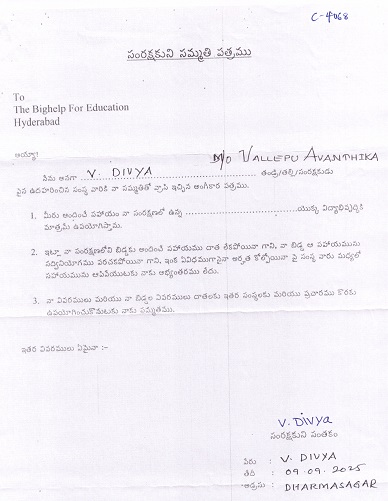 C-4068
సంరక్షకుని సమ్మతి పత్రము
To
The Bighelp For Education
Hyderabad
అయ్యా!
M/o VALLEPU AVANTHIKA
నేను అనగా V. DIVYA తండ్రి/తల్లి/సంరక్షకుడు
పైన ఉదహరించిన సంస్థ వారికి నా సమ్మతితో వ్రాసి ఇచ్చిన అంగీకార పత్రము.
1. మీరు అందించే సహాయం నా సంరక్షణలో ఉన్న ........................................ యొక్క విద్యాభివృద్ధికి
మాత్రమే ఉపయోగిస్తాను.
2. ఇట్లా నా సంరక్షణలోని బిడ్డకు అందించే సహాయము దాత లేకపోయినా గాని, నా బిడ్డ ఆ సహాయమును
సద్వినియోగము పరచకపోయినా గాని, ఇంక ఏవిధముగానైనా అర్హత కోల్పోయినా పై సంస్థ వారు మధ్యలో
సహాయమును ఆపివేయుటకు నాకు అభ్యంతరము లేదు.
3. నా వివరములు మరియు నా బిడ్డల వివరములు దాతలకు ఇతర సంస్థలకు మరియు ప్రచారము కొరకు
ఉపయోగించుకొనుటకు నాకు సమ్మతము.
ఇతర వివరములు ఏమైనా :-
V. Divya
సంరక్షకుని సంతకం
పేరు : V. DIVYA
తేది : 09.09.2025
అడ్రసు : DHARMASAGAR